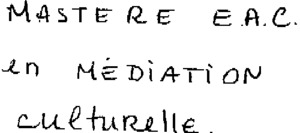 MASTERE E.A.C.
en MÉDIATION
culturelle.